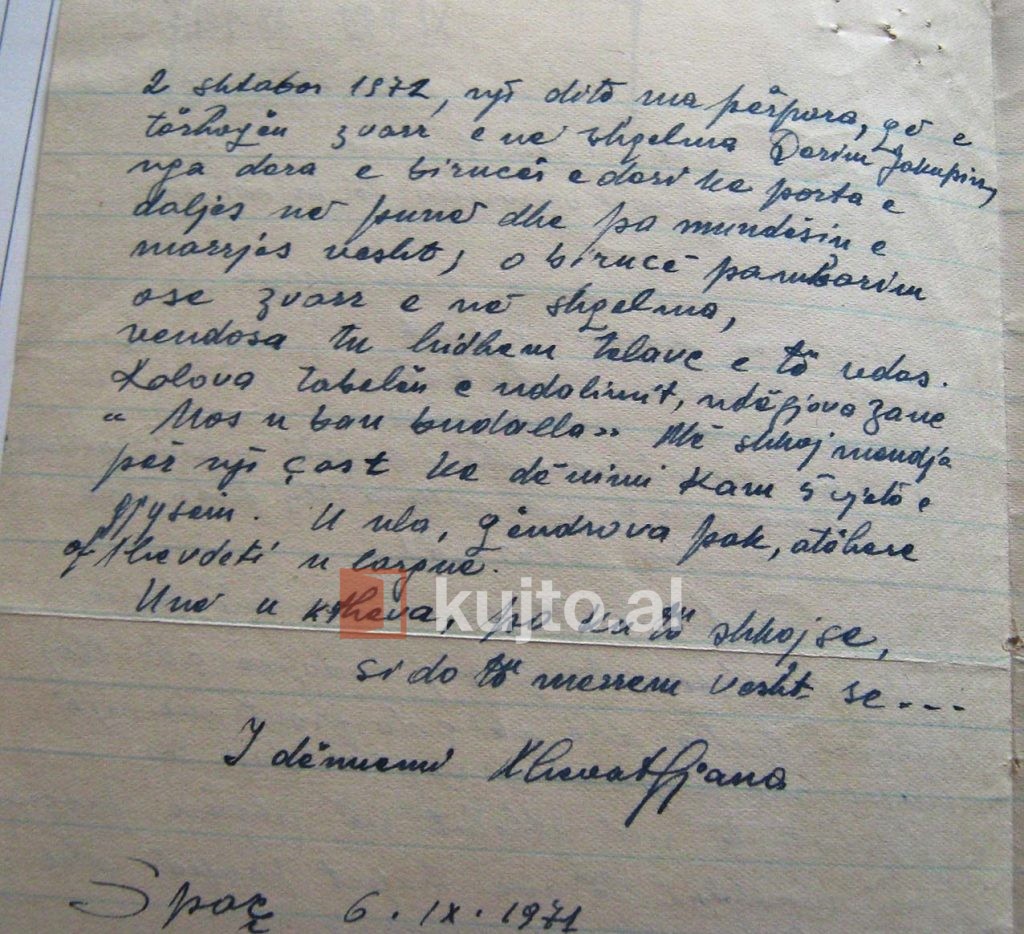 2 shtator 1971, një ditë ma përpara, që e
tërhoqën zvarr e në shqelma Dorim Jakupin,
nga dera e birucës e deri ke porta e
daljes në punë dhe pa mundësin e
marrjes vesht, o birucë pambarim
ose zvarr e në shqelma,
vendosa tu hidhem telave e të vdas.
Kalova tabelën e ndalimit, ndëgjova zane
" Mos u ban budalla " Më shkoj mendja
për një çast ke dënimi kam 5 vjetë e
gjysëm. U ula, qëndrova pak, atëhere
of Xhevdeti u largue.
Unë u ktheva, pa ku të shkoj se,
si do të merrem vesht se ---
I dënuemi Xhevat Gjana
Spaç 6. IX. 1971
kujto.al